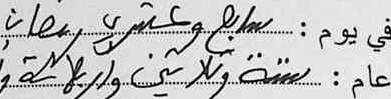 في يوم : سابع وعشري رمضان
عام : ستة وثلاثين واربعمائة و